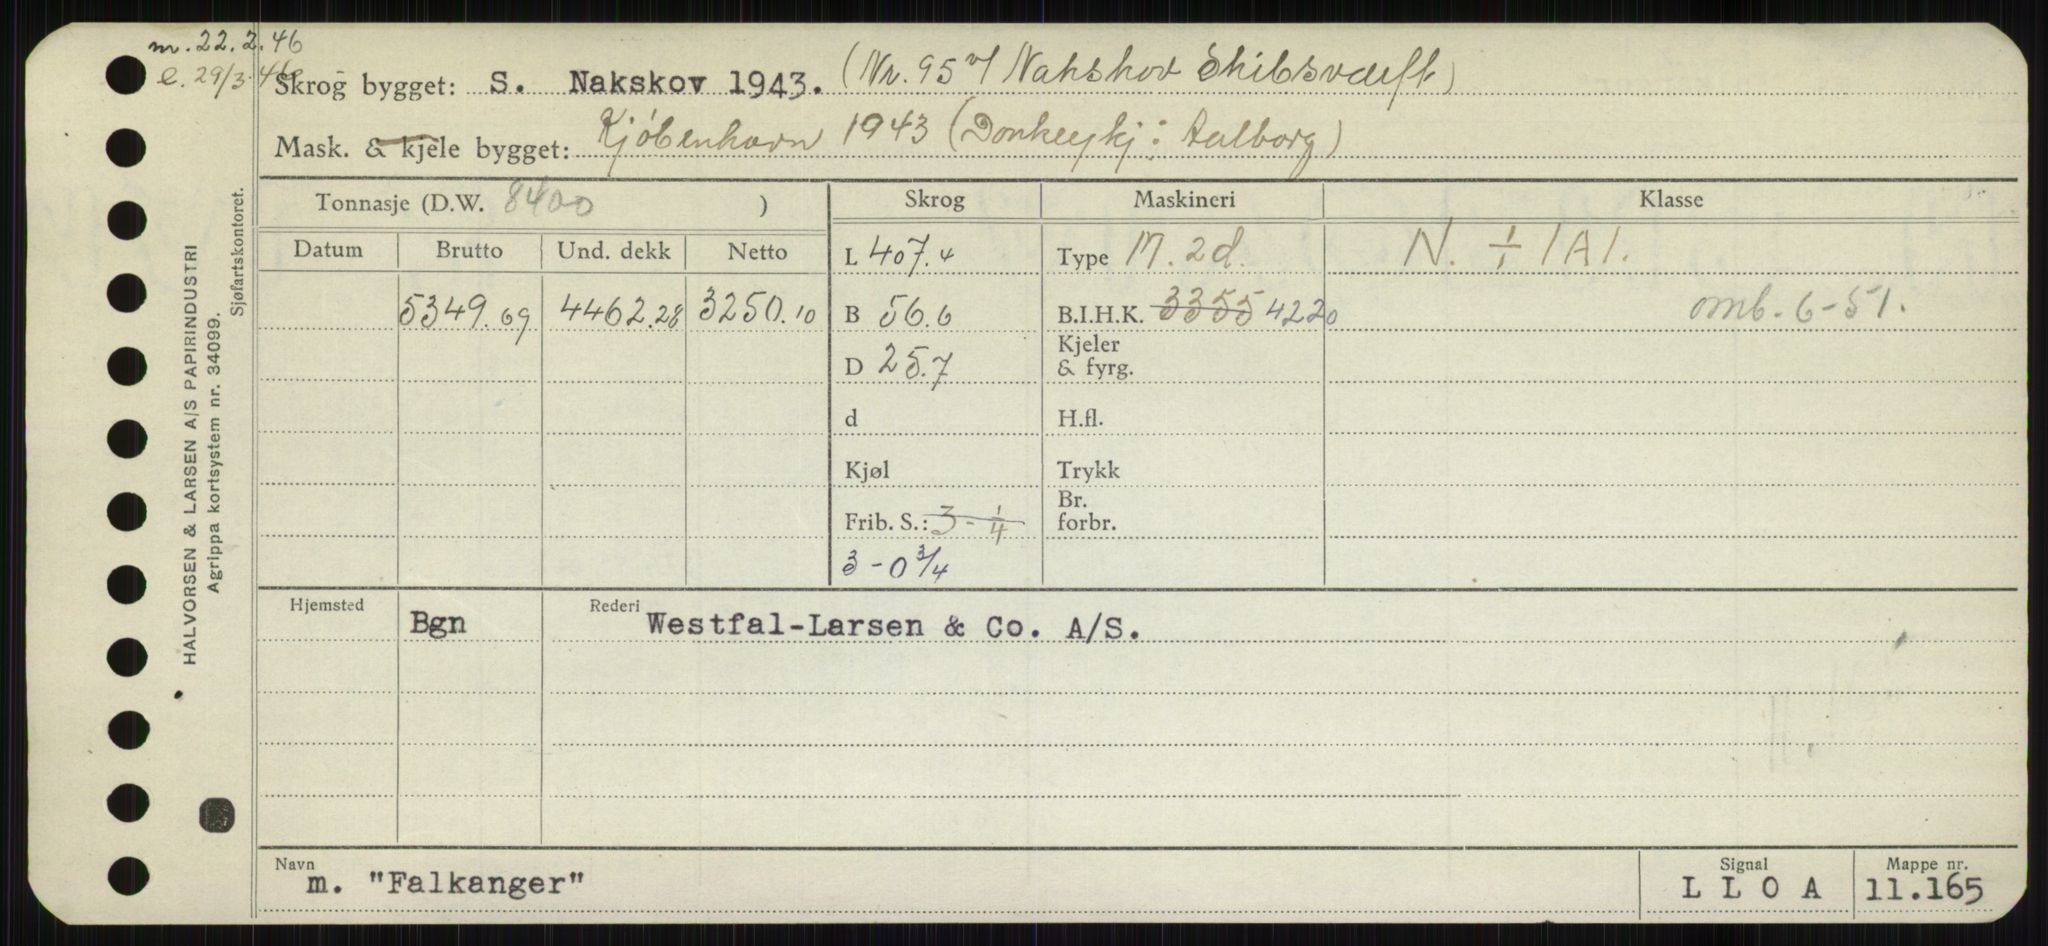 m. 22.2.46
e. 29/3.46
Skrog bygget: S. Nakskov 1943. (Nr. 95 v/ Nakskov Skibsværft)
Mask. & kjele bygget: Kjøbenhavn 1943 (Donkeykj: Aalborg)
Tonnasje (D.W. 8400 ) Skrog Maskineri Klasse
Datum Brutto Und. dekk Netto L 407.4 Type M. 2d. N. ÷ 1A1.
5349.69 4462.28 3250.10 B 56.0 B.I.H.K. 3355 4220 omb. 6-51.
D 25.7 Kjeler & fyrg.
d H.fl.
Kjøl Trykk
Frib. S.: 3-1/4 Br. forbr.
3-0 3/4
Hjemsted Bgn Rederi Westfal-Larsen & Co. A/S.
Navn m. "Falkanger" Signal L L O A Mappe nr. 11.165
HALVORSEN & LARSEN A/S PAPIRINDUSTRI
Agrippa kortsystem nr. 34099.
Sjøfartskontoret.